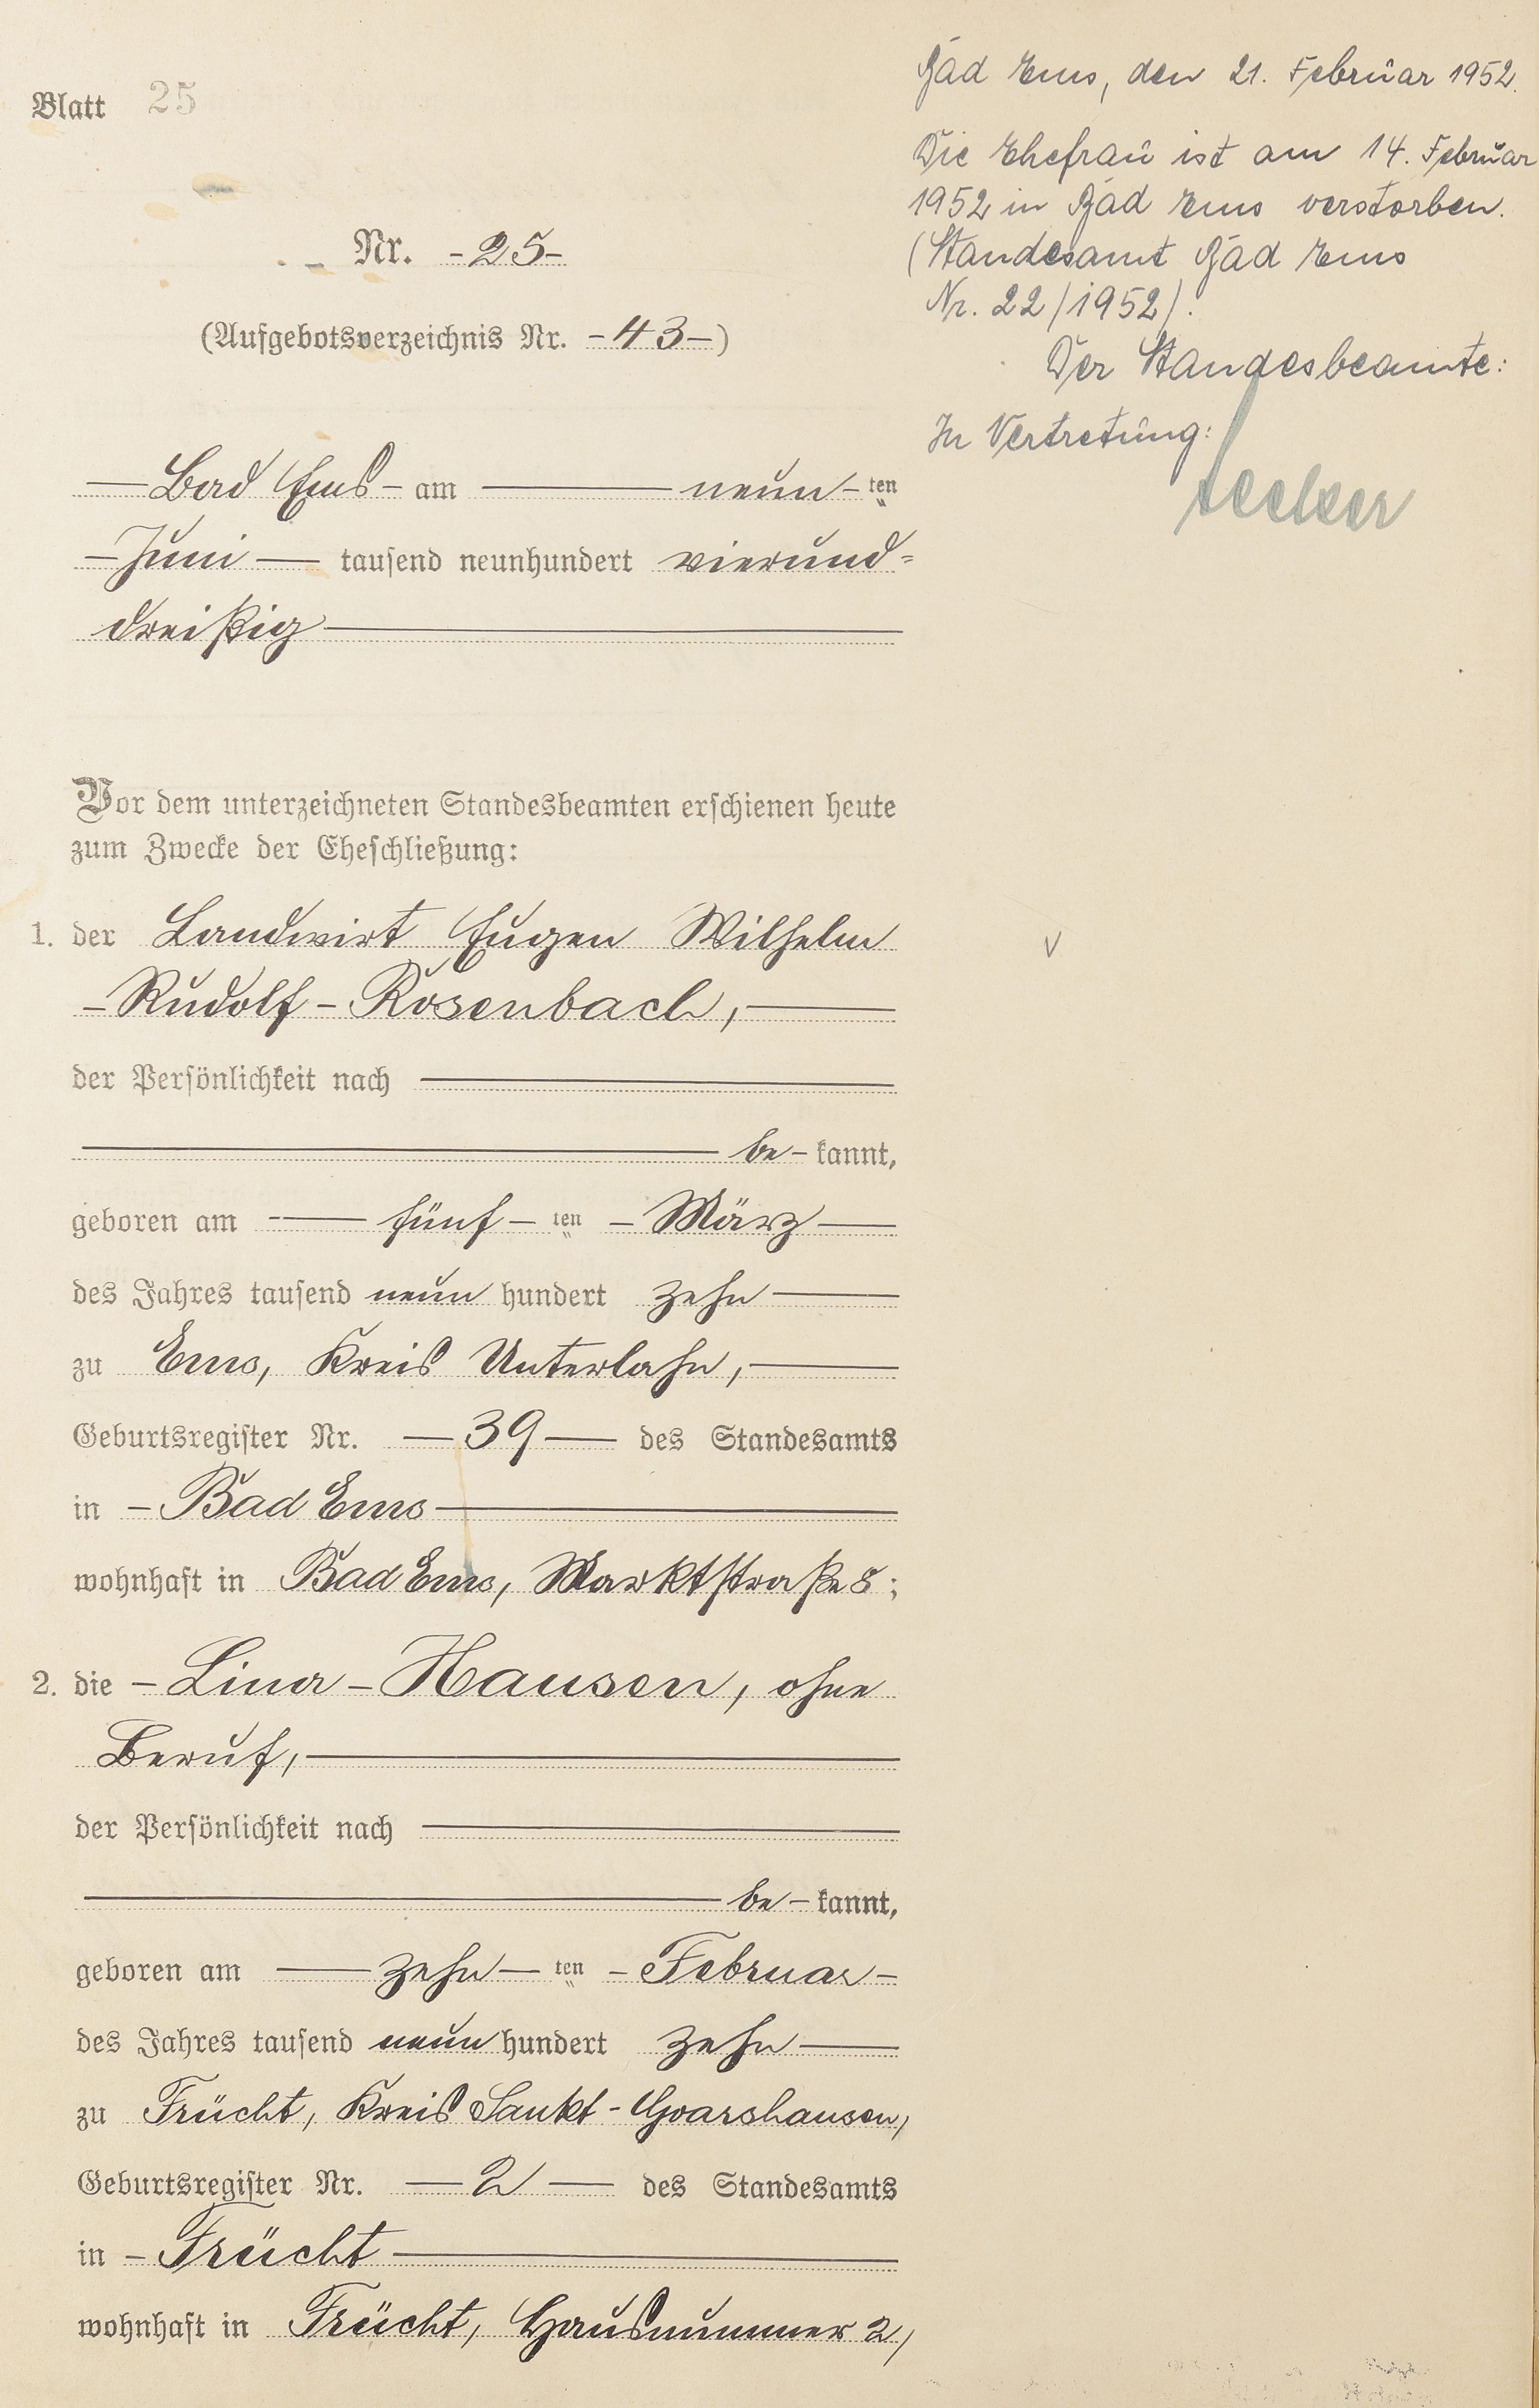 Blatt 25
Nr. -25-
(Aufgebotsverzeichnis Nr. -43-)
Bad Ems - am neun-ten
Juni tausend neunhundert vierund=
dreißig
Vor dem unterzeichneten Standesbeamten erschienen heute
zum Zwecke der Eheschließung:
1. der Landwirt Eugen Wilhelm
-Rudolf- Rosenbach,
der Persönlichkeit nach
be-kannt,
geboren am fünf-ten - März
des Jahres tausend neun hundert zehn
zu Ems, Kreis Unterlahn,
Geburtsregister Nr. 39 des Standesamts
in - Bad Ems
wohnhaft in Bad Ems, Marktstraße 8;
2. die - Lina - Hausen, ohne
Beruf,
der Persönlichkeit nach
be-kannt,
geboren am zehn-ten - Februar-
des Jahres tausend neun hundert zehn
zu Frücht, Kreis Sankt-Goarshausen,
Geburtsregister Nr. 2 des Standesamts
in - Frücht
wohnhaft in Frücht, Hausnummer 2,
Bad Ems, den 21. Februar 1952.
Die Ehefrau ist am 14. Februar
1952 in Bad Ems verstorben.
(Standesamt Bad Ems
Nr. 22/1952).
Der Standesbeamte:
In Vertretung: